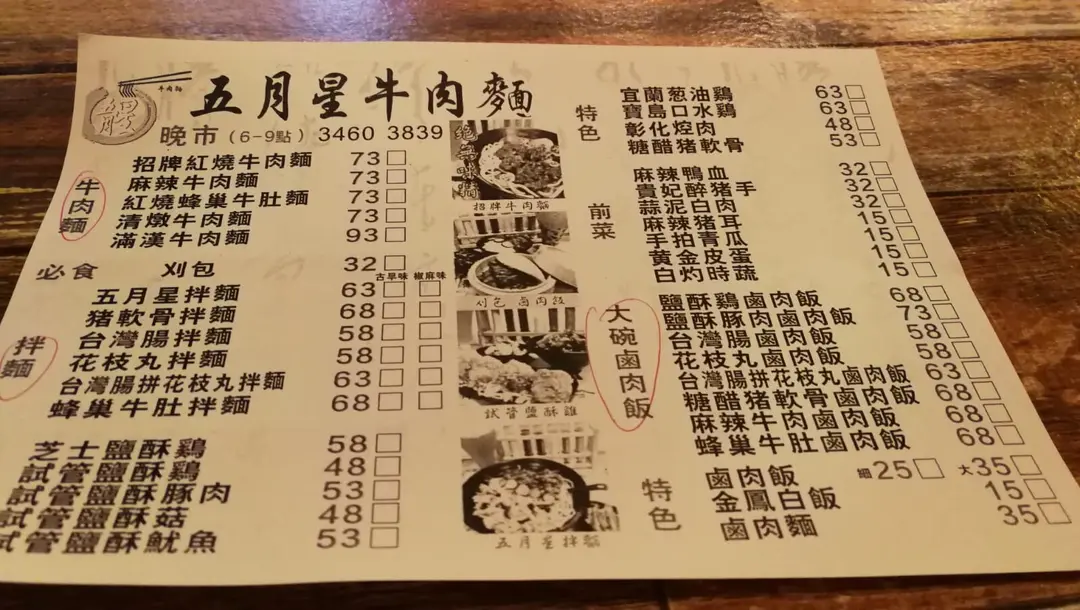 五月星牛肉麵
晚市 (6-9點) 3460 3839
牛肉麵
招牌紅燒牛肉麵 73
麻辣牛肉麵 73
紅燒蜂巢牛肚麵 73
清燉牛肉麵 73
滿漢牛肉麵 93
必食 刈包 32
古早味 椒麻味
拌麵
五月星拌麵 63
豬軟骨拌麵 68
台灣腸拌麵 58
花枝丸拌麵 58
台灣腸拼花枝丸拌麵 63
蜂巢牛肚拌麵 68
芝士鹽酥鷄 58
試管鹽酥鷄 48
試管鹽酥豚肉 53
試管鹽酥菇 48
試管鹽酥魷魚 53
招牌牛肉麵
刈包 鹵肉飯
試管鹽酥雞
五月星拌麵
特色
宜蘭葱油鷄 63
寶島口水鷄 63
彰化焢肉 48
糖醋猪軟骨 53
前菜
麻辣鴨血 32
貴妃醉猪手 32
蒜泥白肉 32
麻辣猪耳 15
手拍青瓜 15
黃金皮蛋 15
白灼時蔬 15
大碗鹵肉飯
鹽酥鷄鹵肉飯 68
鹽酥豚肉鹵肉飯 73
台灣腸鹵肉飯 58
花枝丸鹵肉飯 58
台灣腸拼花枝丸鹵肉飯 63
糖醋猪軟骨鹵肉飯 68
麻辣牛肉鹵肉飯 68
蜂巢牛肚鹵肉飯 68
特色
鹵肉飯 細25 大35
金鳳白飯 15
鹵肉麵 35